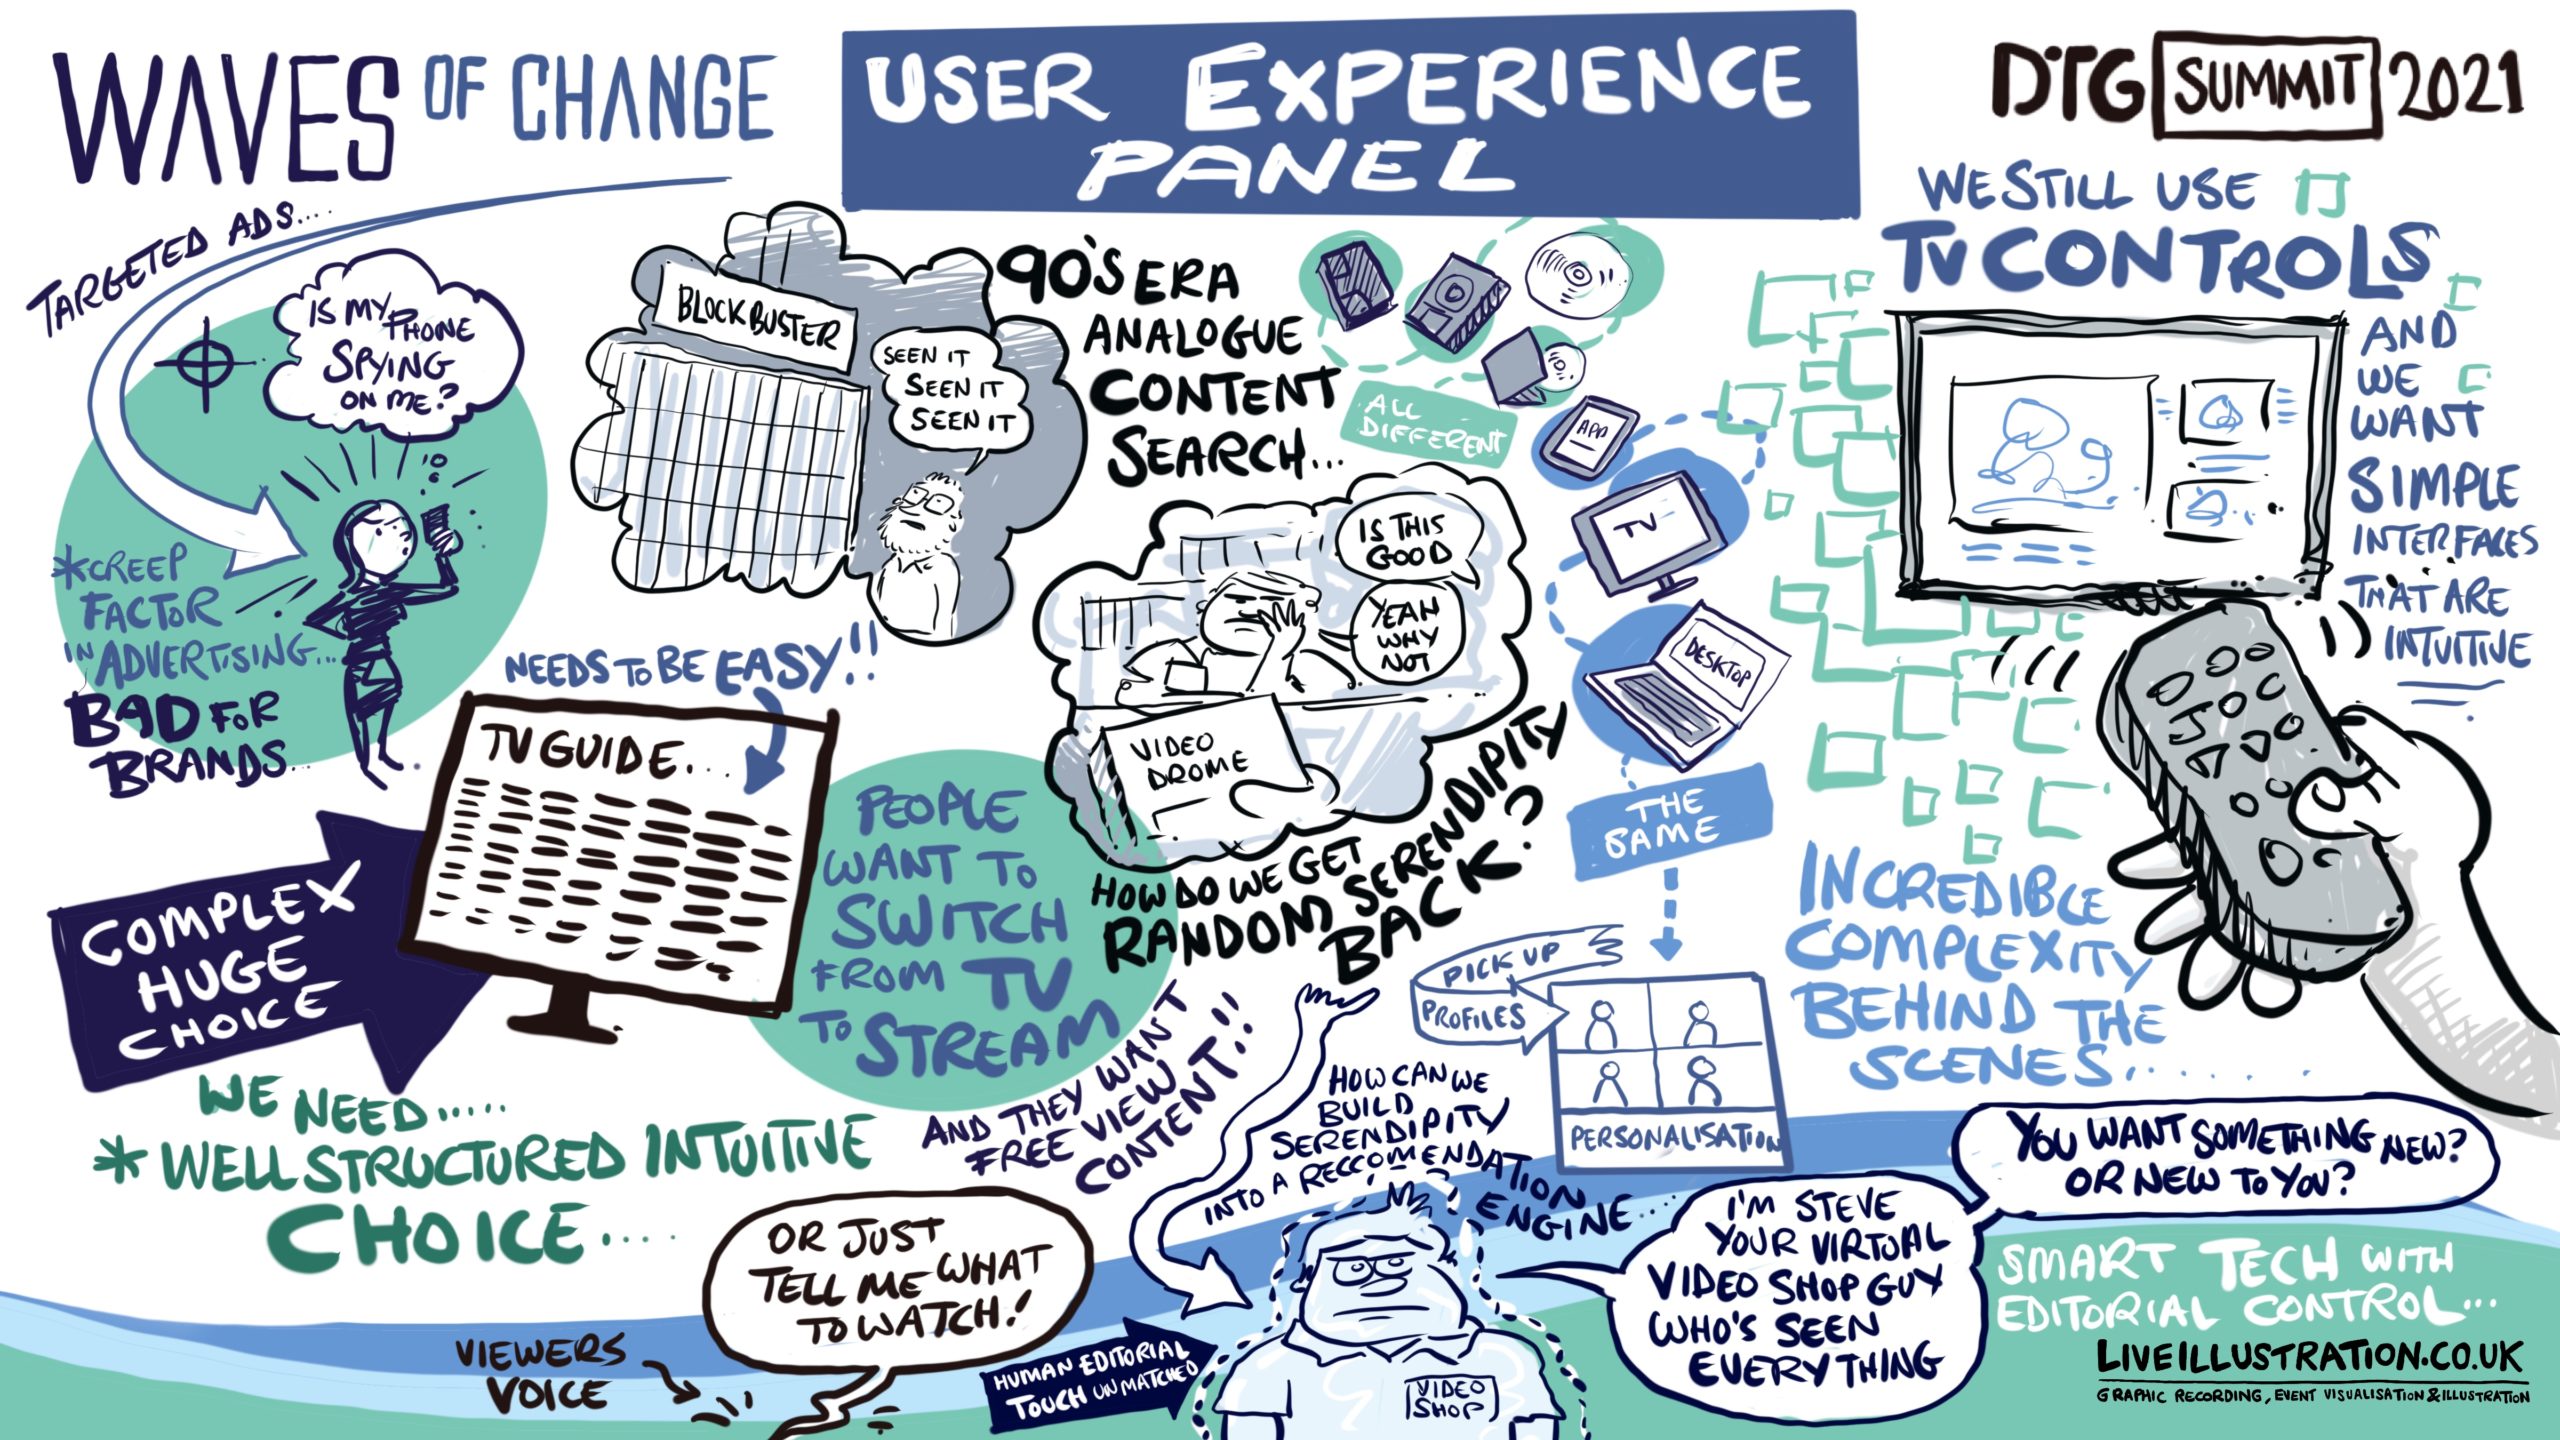 WAVES OF CHANGE
USER EXPERIENCE
PANEL
DTG SUMMIT 2021
TARGETED ADS....
IS MY PHONE
SPYING
ON ME?
*CREEP
FACTOR
IN ADVERTISING...
BAD FOR
BRANDS...
BLOCKBUSTER
SEEN IT
SEEN IT
SEEN IT
90'S ERA
ANALOGUE
CONTENT
SEARCH...
ALL
DIFFERENT
APP
TV
DESKTOP
THE
SAME
IS THIS
GOOD
YEAH
WHY
NOT
VIDEO
DROME
HOW DO WE GET
RANDOM SERENDIPITY
BACK?
WE STILL USE
TV CONTROLS
AND
WE
WANT
SIMPLE
INTERFACES
THAT ARE
INTUITIVE
INCREDIBLE
COMPLEXITY
BEHIND THE
SCENES......
NEEDS TO BE EASY!!
TV GUIDE....
COMPLEX
HUGE
CHOICE
PEOPLE
WANT TO
SWITCH
FROM TV
TO STREAM
AND THEY WANT
FREE VIEW
CONTENT!!
WE NEED.....
* WELL STRUCTURED INTUITIVE
CHOICE.....
PICK UP
PROFILES
PERSONALISATION
HOW CAN WE
BUILD
SERENDIPITY
INTO A RECCOMENDATION
ENGINE....
OR JUST
TELL ME WHAT
TO WATCH!
VIEWERS
VOICE
HUMAN EDITORIAL
TOUCH UNMATCHED
VIDEO
SHOP
I'M STEVE
YOUR VIRTUAL
VIDEO SHOP GUY
WHO'S SEEN
EVERYTHING
YOU WANT SOMETHING NEW?
OR NEW TO YOU?
SMART TECH WITH
EDITORIAL CONTROL...
LIVEILLUSTRATION.CO.UK
GRAPHIC RECORDING, EVENT VISUALISATION & ILLUSTRATION